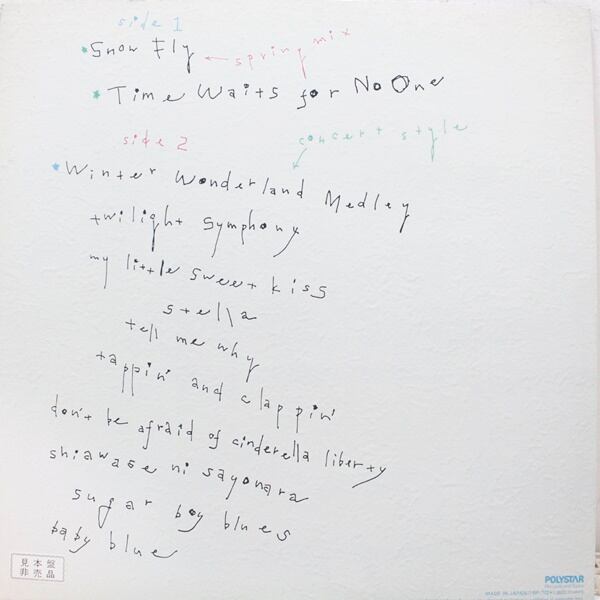 side 1
*Snow Fly ← spring mix
*Time Waits for No One
side 2
concert style
*Winter Wonderland Medley
twilight symphony
my little sweet kiss
stella
tell me why
tappin' and clappin'
don't be afraid of cinderella liberty
shiawase ni sayonara
sugar boy blues
baby blue
見本盤
非売品
POLYSTAR